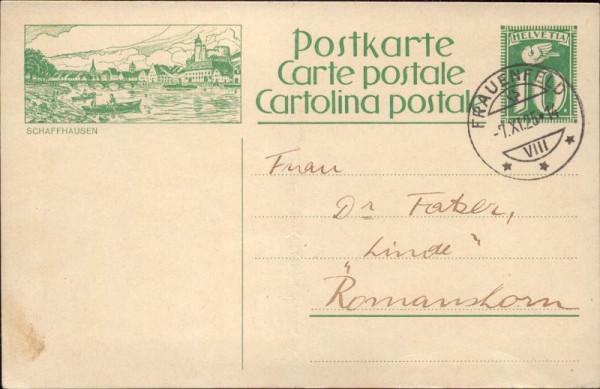 Postkarte
Carte postale
Cartolina postale
HELVETIA
10
SCHAFFHAUSEN
FRAUENFELD
-7.XI.25
VIII
Frau
Dr Fatzer,
"Linde"
Romanshorn